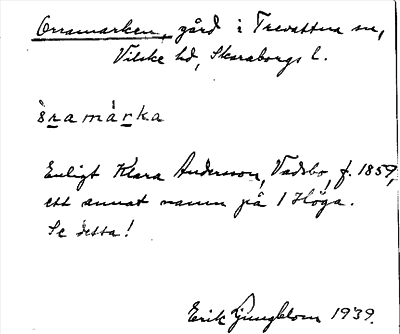 Orramarken, gård i Trevattna sn,
Vilske hd, Skaraborgs l.
òramárka
Enligt Klara Andersson, Vadsbo, f. 1859,
ett annat namn på 1 Höga.
Se detta!
Erik Ljungblom 1939.